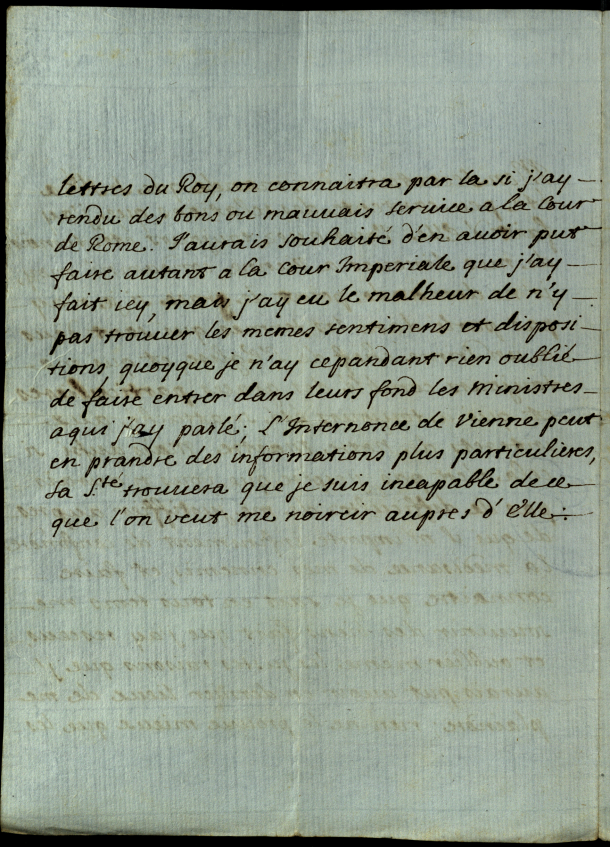 lettres du Roy, on connaitra par la si j'ay
rendu des bons ou mauvais service a la Cour
de Rome. J'aurais souhaité d'en avoir put
faire autant a la Cour Imperiale que j'ay
fait icy, mais j'ay eu le malheur de n'y
pas trouver les memes sentimens et disposi
tions, quoyque je n'ay cepandant rien oublié
de faire entrer dans leurs fond les Ministres
a qui j'ay parlé; L'Internonce de Vienne peut
en prandre des informations plus particulieres,
Sa S.té trouvera que je suis incapable de ce
que l'on veut me noircir aupres d'Elle.